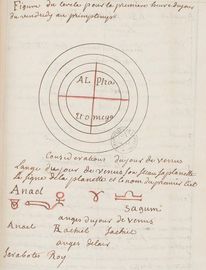 Figure du cercle pour le premier heure du jour
du vendredy au primptemps
AL Pha
et o megu
Considerations du jour de venus
L'ange du jour de venus son sceau sa planette
le signe de la planette et le nom du premier ciel
Anael
Sagum
anges du jour de venus
Anael Rachiel Sachiel
anges de l'air
Sarabotes Roy